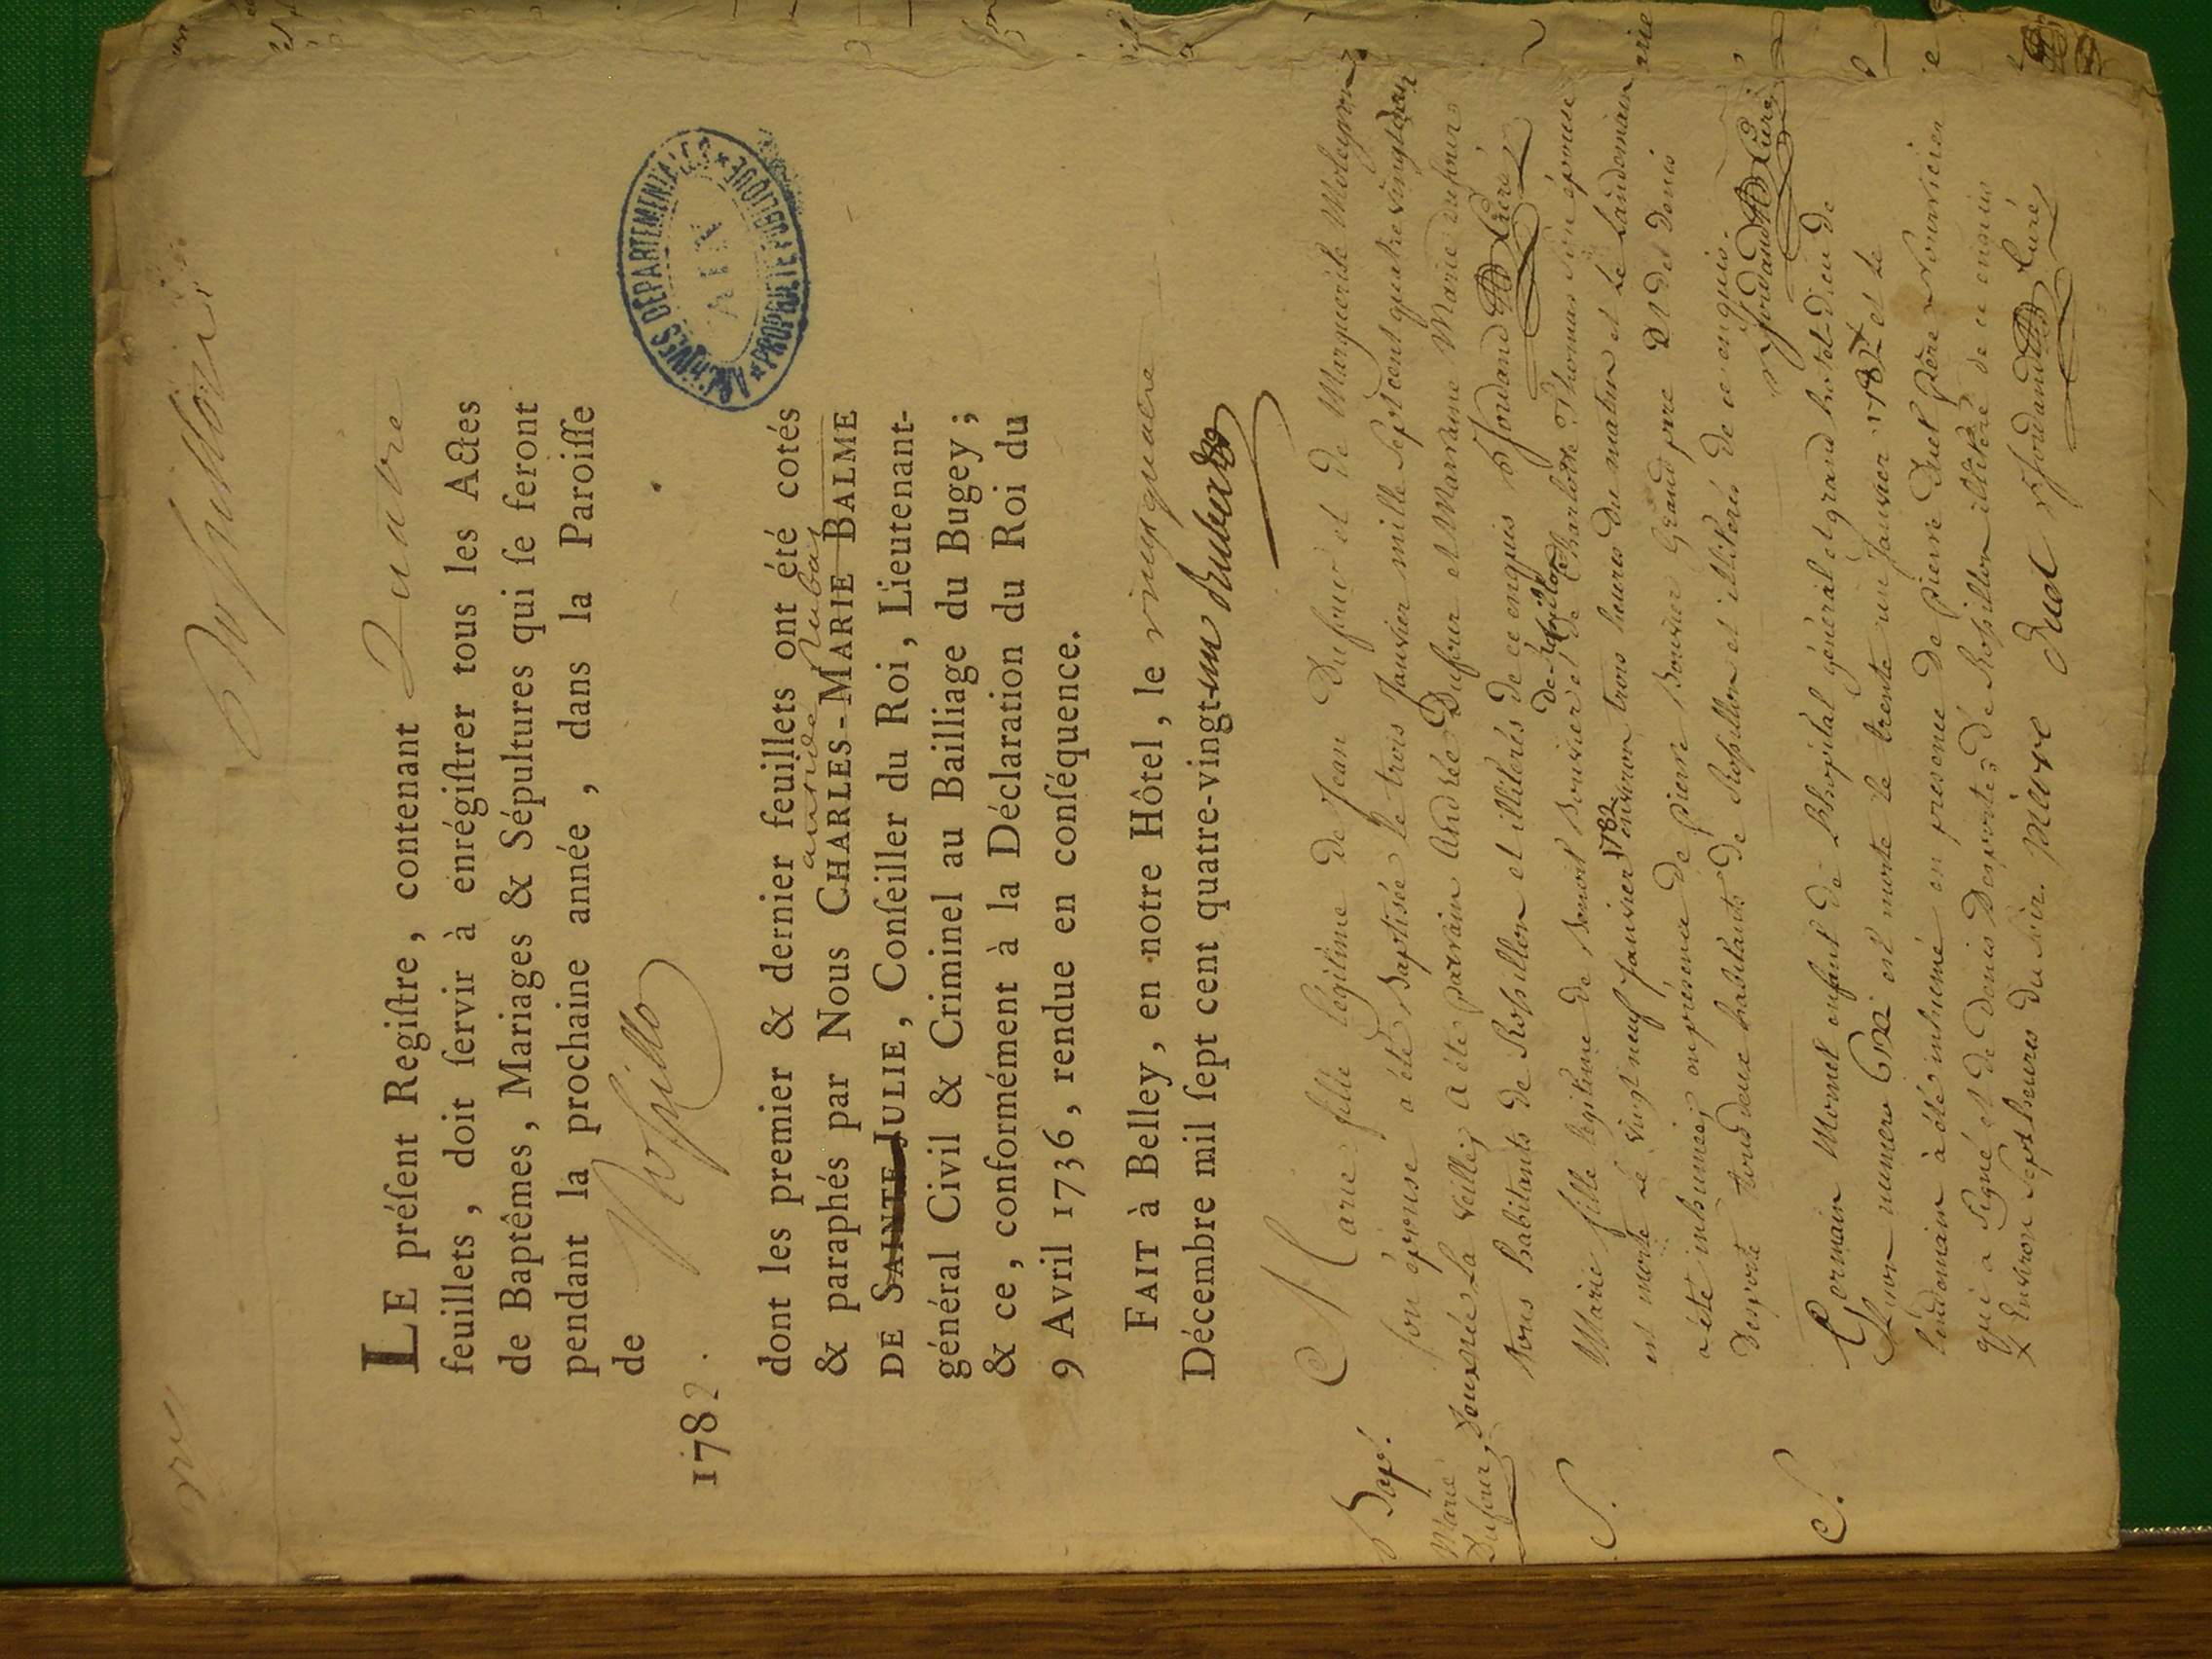 Rossillon
LE préſent Regiſtre, contenant Quatre
feuillets, doit ſervir à enrégiſtrer tous les Actes
de Baptêmes, Mariages & Sépultures qui ſe feront
pendant la prochaine année, dans la Paroiſſe
de Roſſillo
1782.
dont les premier & dernier feuillets ont été cotés
& paraphés par Nous CHARLES-MARIE BALME
DE SAINTE JULIE, Conſeiller du Roi, Lieutenant-
général Civil & Criminel au Bailliage du Bugey;
& ce, conformément à la Déclaration du Roi du
9 Avril 1736, rendue en conſéquence.
FAIT à Belley, en notre Hôtel, le vingt quatre
Décembre mil ſept cent quatre-vingt-un
ARCHIVES DEPARTEMENTALES
AIN
PROPRIETE PUBLIQUE
Bapt.
Marie
Dufour
Marie fille légitime de Jean Dufour et de Marguerite
son épouse a été Baptisée le trois Janvier mille Sept cent quatre vingt deux
née La veille, a été parrain André Dufour et Marraine Marie dufour
tous habitants de Rossillon et illiterés de ce enquis Joudand Curé
S.
de Rossillon
Marie fille legitime de Benoit Bouvier et de Charlotte Thomas son épouse
est morte le vingt neuf Janvier 1782 environ trois heures du matin et le Landemain
a été inhumée en présence de Pierre Bouvier Grand pere et de denis
Desporte tous deux habitants de Rossillon et illiterés de ce enquis.
Joudand Curé
S.
Germain Monnet enfant de L'hopital général et grand hotel-Dieu de
Lyon numero est morte le trente un Janvier 1782 et le
lendemain à été inhumé en presence de pierre Duet père Nourricier
qui a Signé et de Denis Desportes de Rossillon illiteré de ce enquis
Environ Sept heures du soir. piere duet Joudand Curé